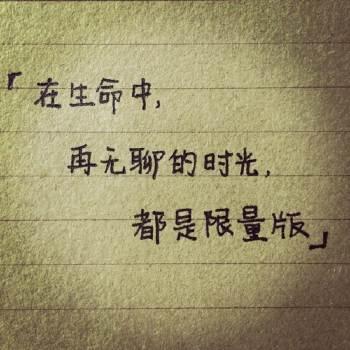 「在生命中，
再无聊的时光，
都是限量版」